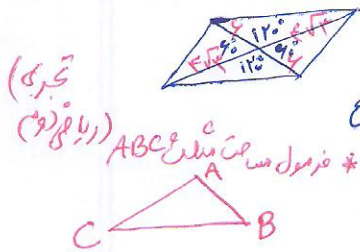 ۶ ۱۲۰° ۴√۳
۴√۳ ۶۰° ۶۰° ۶
۱۲۰°
(تجربی
(ریاضی (دوم
* فرمول مساحت مثلث ABC
A
C B